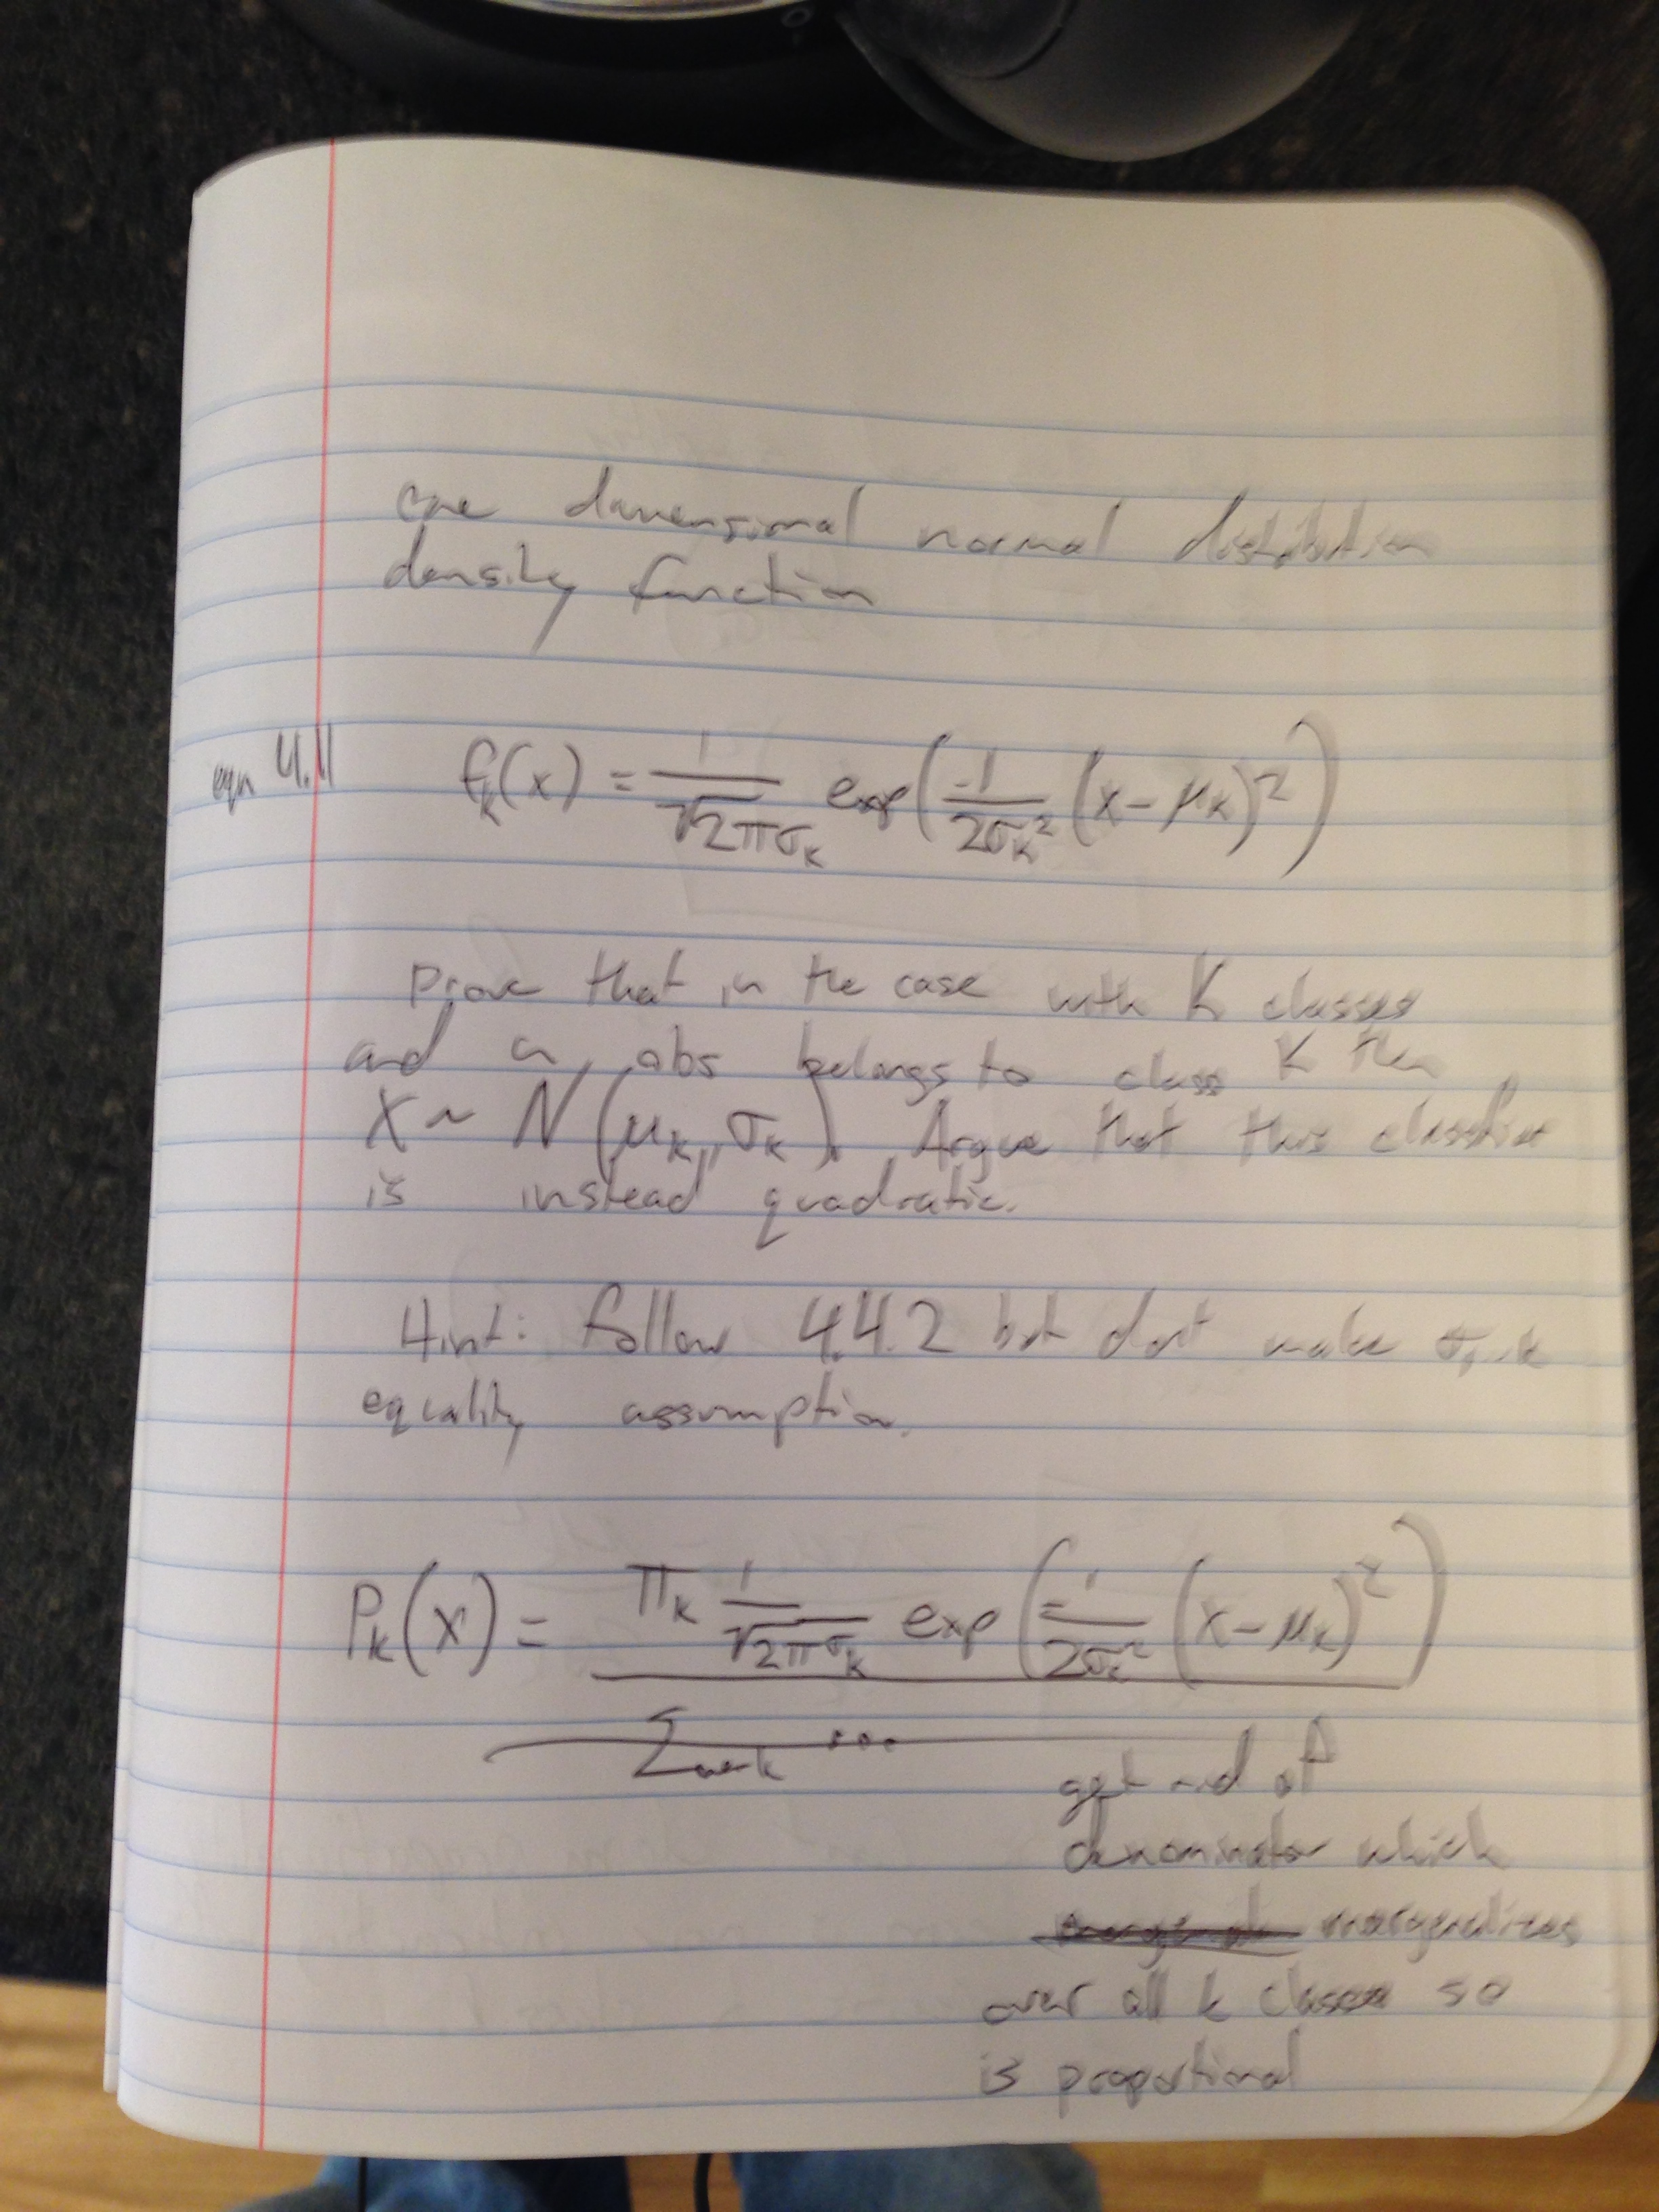 one dimensional normal distribution
density function
eqn 4.11 fₖ(x) = 1/√2πσₖ exp(-1/2σₖ² (x-μₖ)²)
Prove that in the case with K classes
and an obs belongs to class K then
X ~ N(μₖ, σₖ). Argue that this classifier
is instead quadratic.
Hint: follow 4.4.2 but dont make
equality assumption.
Pₖ(x) = πₖ 1/√2πσₖ exp(-1/2σₖ² (x-μₖ)²)
Σ ...
get rid of
denominator which
margenalizes
over all k classes so
is proportional